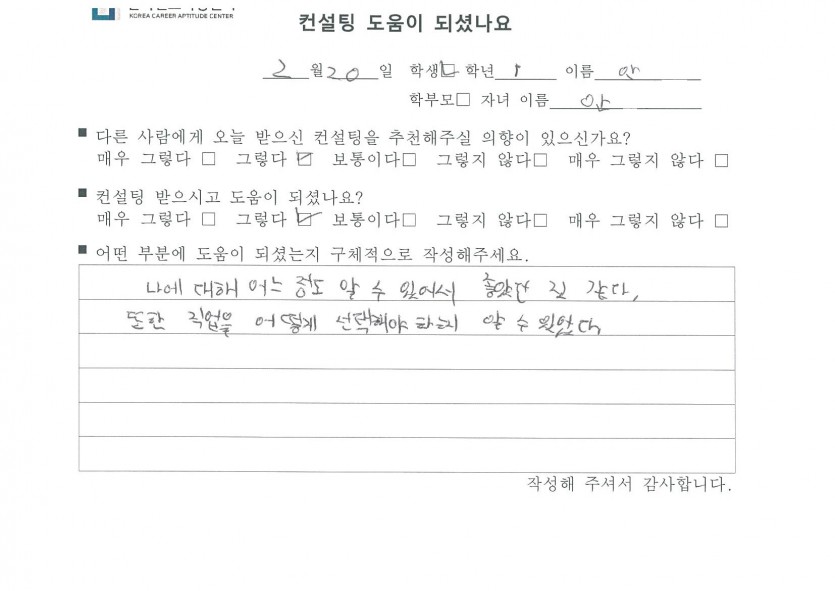 KOREA CAREER APTITUDE CENTER
컨설팅 도움이 되셨나요
2 월 20 일 학생☑ 학년 1 이름 안
학부모□ 자녀 이름 안
■ 다른 사람에게 오늘 받으신 컨설팅을 추천해주실 의향이 있으신가요?
매우 그렇다 □ 그렇다 ☑ 보통이다□ 그렇지 않다□ 매우 그렇지 않다 □
■ 컨설팅 받으시고 도움이 되셨나요?
매우 그렇다 □ 그렇다 ☑ 보통이다□ 그렇지 않다□ 매우 그렇지 않다 □
■ 어떤 부분에 도움이 되셨는지 구체적으로 작성해주세요.
나에 대해 어느 정도 알 수 있어서 좋았던 것 같다.
또한 직업을 어떻게 선택해야 하는지 알 수 있었다
작성해 주셔서 감사합니다.